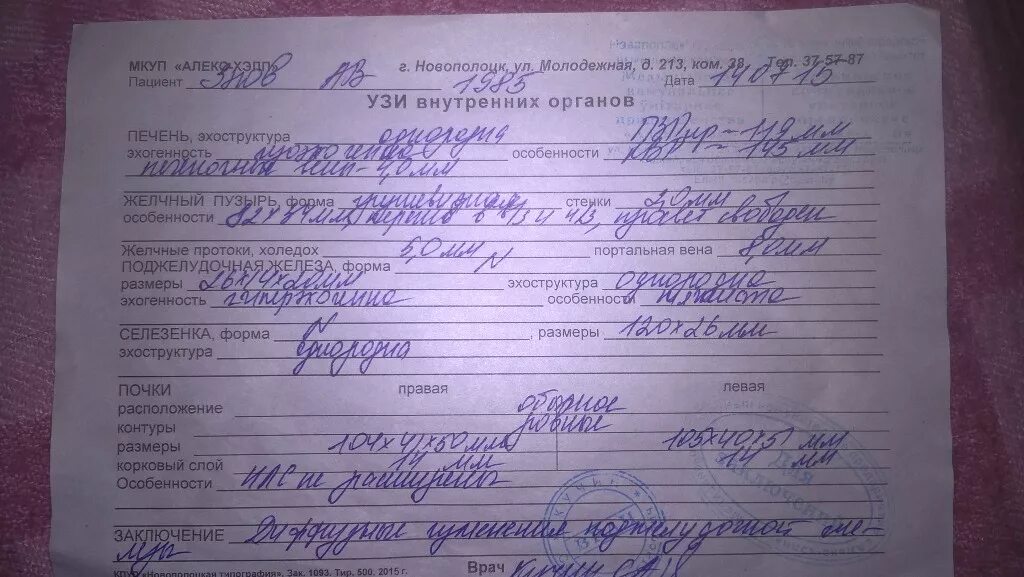 МКУП «АЛЕКС-ХЭДП» г. Новополоцк, ул. Молодежная, д. 213, ком. 38, Тел. 37-57-87
Пациент АВ 1985 Дата 14 07 15
УЗИ внутренних органов
ПЕЧЕНЬ, эхоструктура однородна ПЗРпр - 119 мм
эхогенность особенности КВР - 145 мм
ЖЕЛЧНЫЙ ПУЗЫРЬ, форма грушевидная стенки 2,0 мм
особенности 82х34 мм, перегиб в в/3 и н/3, просвет свободен
Желчные протоки, холедох 5,0 мм портальная вена 8,0 мм
ПОДЖЕЛУДОЧНАЯ ЖЕЛЕЗА, форма N
размеры 26х14х20 мм эхоструктура однородна
эхогенность особенности
СЕЛЕЗЕНКА, форма N, размеры 120х26 мм
эхоструктура однородна
ПОЧКИ правая левая
расположение обычное
контуры ровные
размеры 104х41х50 мм 105х40х51 мм
корковый слой 14 мм 14 мм
Особенности ЧЛС не расширены
ЗАКЛЮЧЕНИЕ Диффузные изменения поджелудочной желе-
зы
КПУП «Новополоцкая типография», Зак. 1093. Тир. 500. 2015 г. Врач